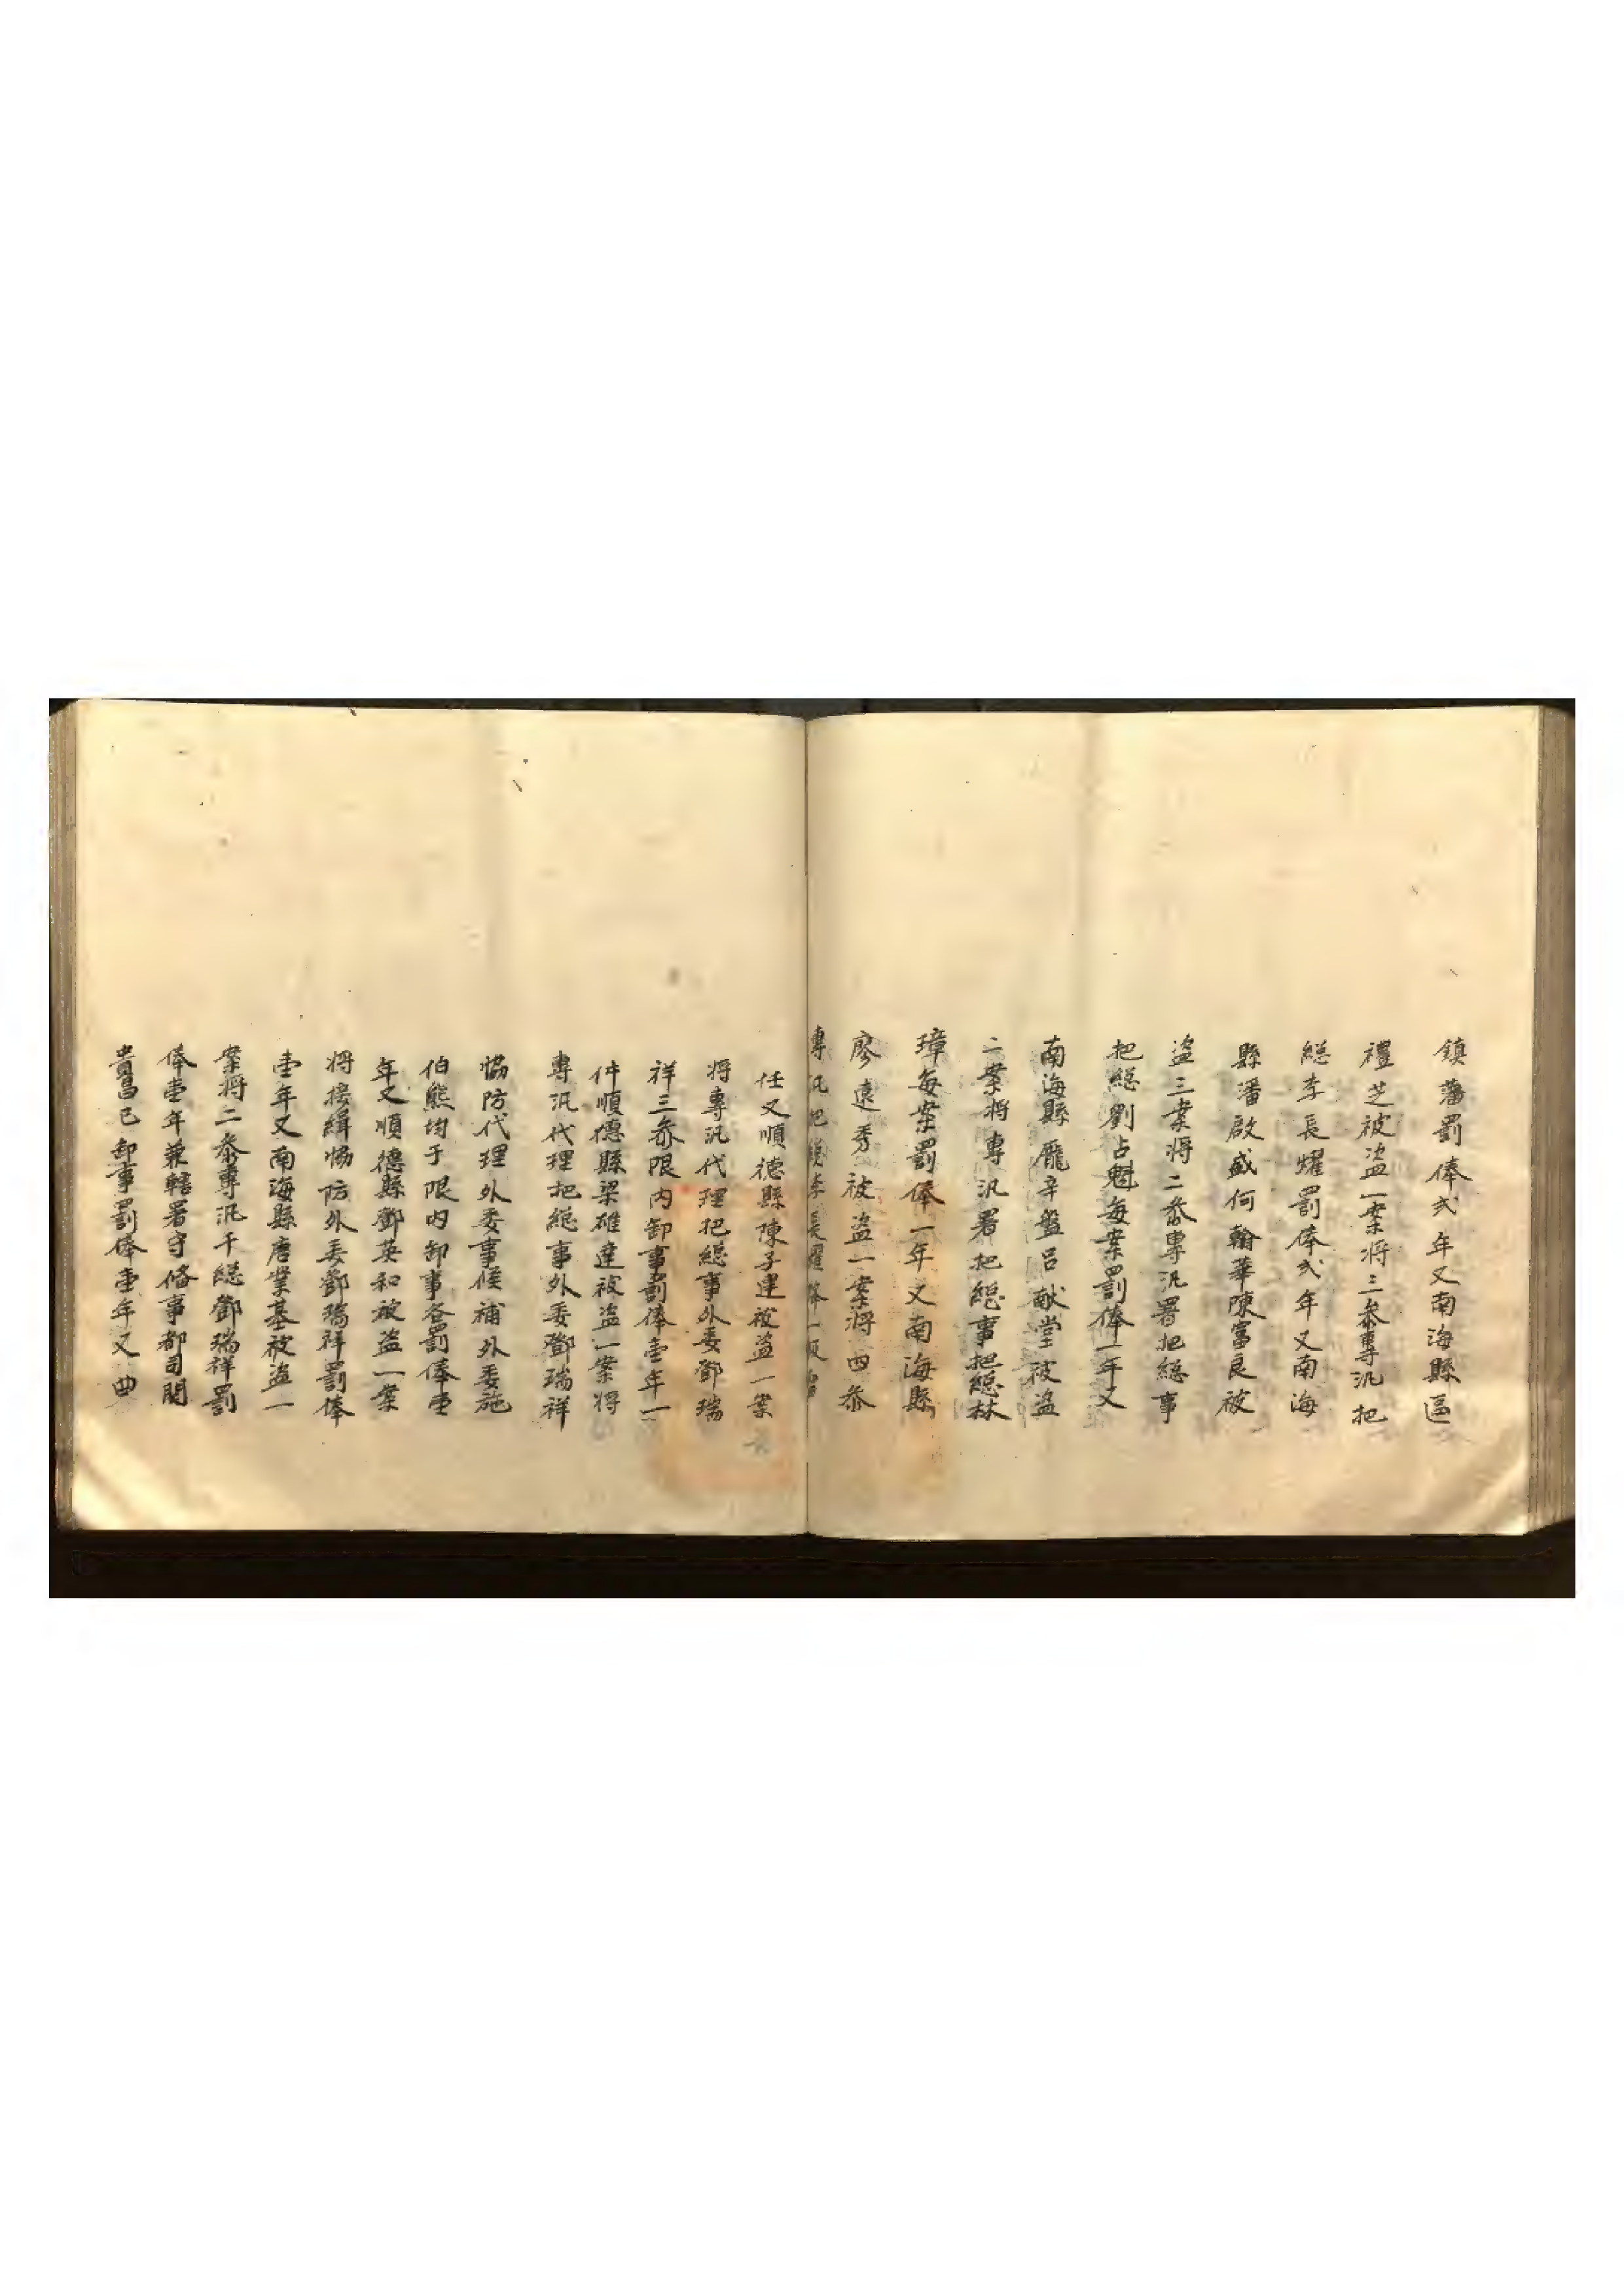 鎮藩罰俸弍年又南海縣區
禮芝被盗一案将三叅專汛把
緫李長耀罰俸弍年又南海
縣潘啟盛何翰華陳富良被
盗三案将二叅專汛署把緫事
把緫劉占魁每案罰俸一年又
南海縣龐辛盤呂献堂被盗
二案将專汛署把緫事把緫林
璋每案罰俸一年又南海縣
廖遠秀被盗一案将四叅
專汛把緫李長耀降一級留
任又順德縣陳子連被盗一案
将專汛代理把緫事外委鄧瑞
祥三叅限内卸事罰俸壹年一
仲順德縣梁維達被盗一案将
專汛代理把緫事外委鄧瑞祥
恊防代理外委事候補外委施
伯熊均于限内卸事各罰俸壹
年又順德縣鄧英和被盗一案
将接緝恊防外委鄧瑞祥罰俸
壹年又南海縣唐業基被盗一
案将二叅專汛千緫鄧瑞祥罰
俸壹年兼轄署守俻事都司閻
貴昌已卸事罰俸壹年又曲